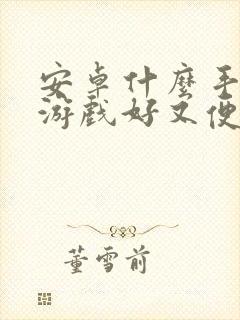 安卓什麼手
游戲好又便
董雪前